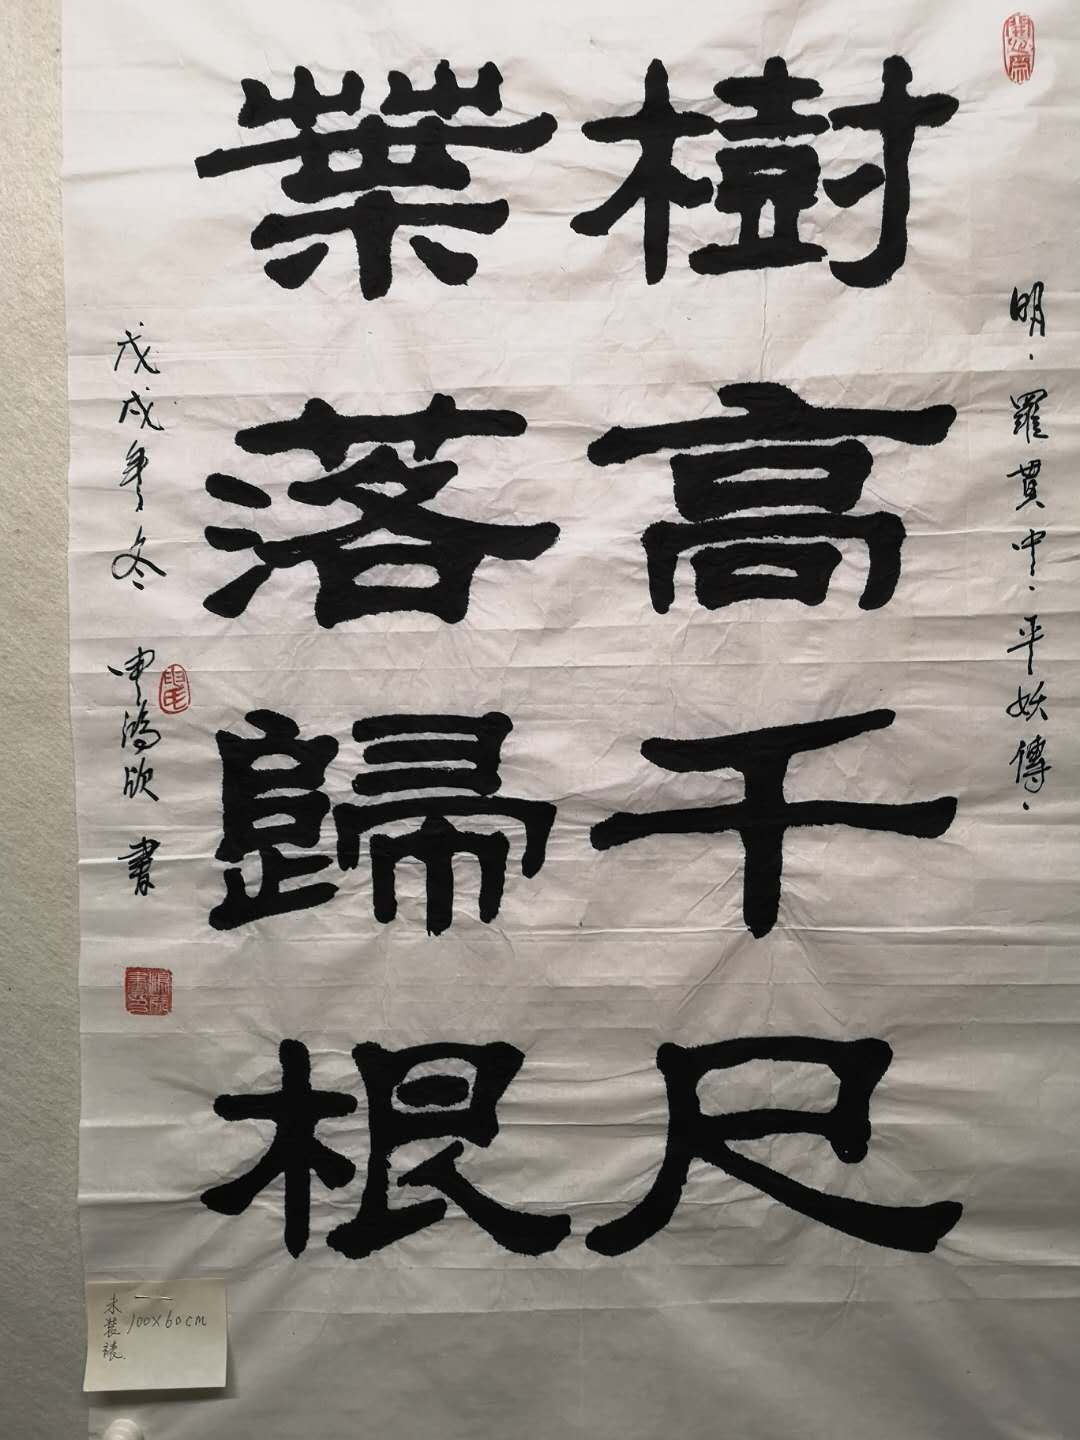 明·羅貫中·平妖傳·
樹高千尺
葉落歸根
戊戌年冬 申鴻欣 書
未裝裱
100×60cm